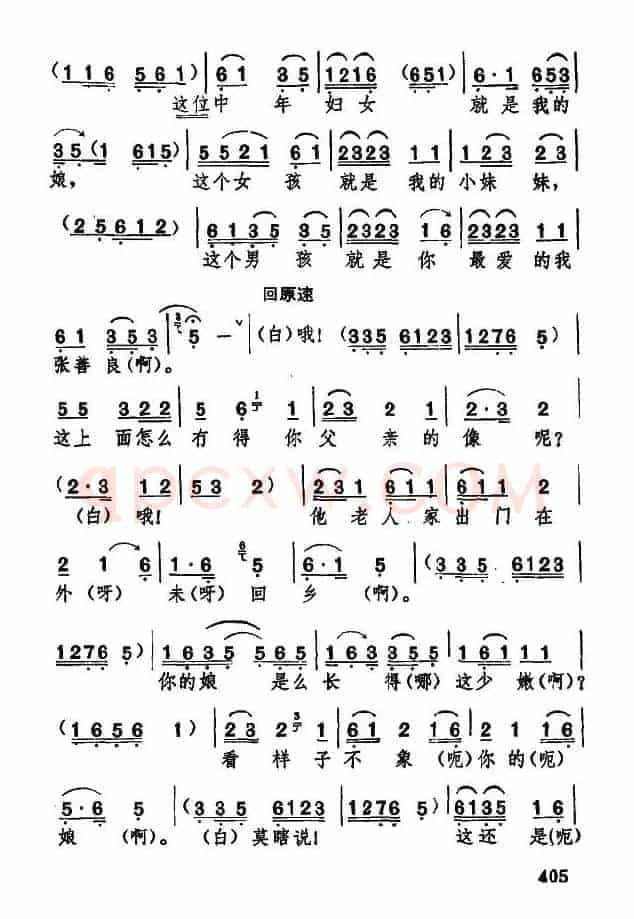 (116 561) | 61 35 | 1216 (651) | 6·1 653 |
这位中 年 妇 女 就 是 我的
35(1 615) | 5521 61 | 2323 11 | 123 23 |
娘， 这个女 孩 就 是 我的 小妹 妹，
(25612) | 6135 35 | 2323 16 | 2323 11 |
这个男 孩 就 是 你 最 爱 的我
回原速
61 353 | 5 — ˅ | (白)哦！ (335 6123 | 1276 5) |
张善 良(啊)。
55 322 | 5 6 1 | 23 2 61 | 2·3 2 |
这上 面怎么 冇 得 你 父 亲 的 像 呢？
(2·3 12 | 53 2) | 231 611 | 611 2 |
(白)哦！ 他 老人 家出 门 在
2 1 6 | 1·6 5 | 6 1 5 | (335 6123 |
外(呀) 未(呀) 回 乡 (啊)。
1276 5) | 1635 565 | 135 65 | 161 11 |
你的娘 是么 长 得(哪) 这少 嫩(啊)？
(1656 1) | 23 2 1 | 61 2 16 | 2 1 16 |
看 样 子 不 象 (呃)你 的(呃)
5·6 5 | (335 6123 | 1276 5) | 6135 16 |
娘 (啊)。 (白)莫瞎说！ 这还 是(呃)
405
qpcxw.com